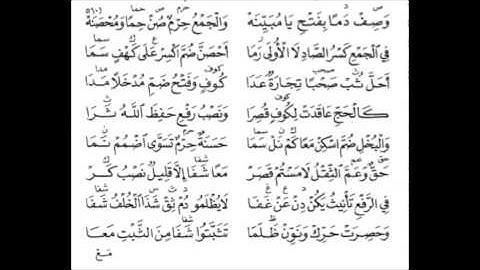 وَصِفْ دُمًا بِفَتْحِ يَا مُبَيِّنَهْ وَالْجَمْعُ حِرْمٌ صُنْ حِمًا وَمُحْصَنَهْ
فِي الْجَمْعِ كَسْرُ الصَّادِ لَا الْأُولَى رَمَا أَحْصَنَّ ضُمَّ اكْسِرْ عَلَى كَهْفٍ سَمَا
أُحِلَّ ثُبْ صَحْبًا تِجَارَةٌ عَدَا كُوفٍ وَفَتْحُ ضَمِّ مُدْخَلًا مَدَا
كَالْحَجِّ عَاقَدَتْ لِكُوفٍ قُصِرَا وَنَصْبُ رَفْعِ حَفِظَ اللَّهُ ثَرَا
وَالْبُخْلِ ضُمَّ اسْكِنْ مَعًا كَمْ نَلْ سَمَا حَسَنَةٌ حِرْمٌ تَسَوَّى اضْمُمْ نَمَا
حَقٌّ وَعَمَّ الثِّقْلُ لَامَسْتُمْ قَصَرْ مَعًا شَفَا إِلَّا قَلِيلٌ نَصْبُ كَرْ
فِي الرَّفْعِ تَأْنِيثُ يَكُنْ دِنْ عَنْ غَفَا لَا يُظْلَمُو دُمْ ثِقْ شَذَا الْخُلْفُ شَفَا
وَحَصِرَتْ حَرِّكْ وَنَوِّنْ ظَلَعَا تَثَبَّتُوا شَفَا مِنَ الثَّبْتِ مَعَا
مَعْ